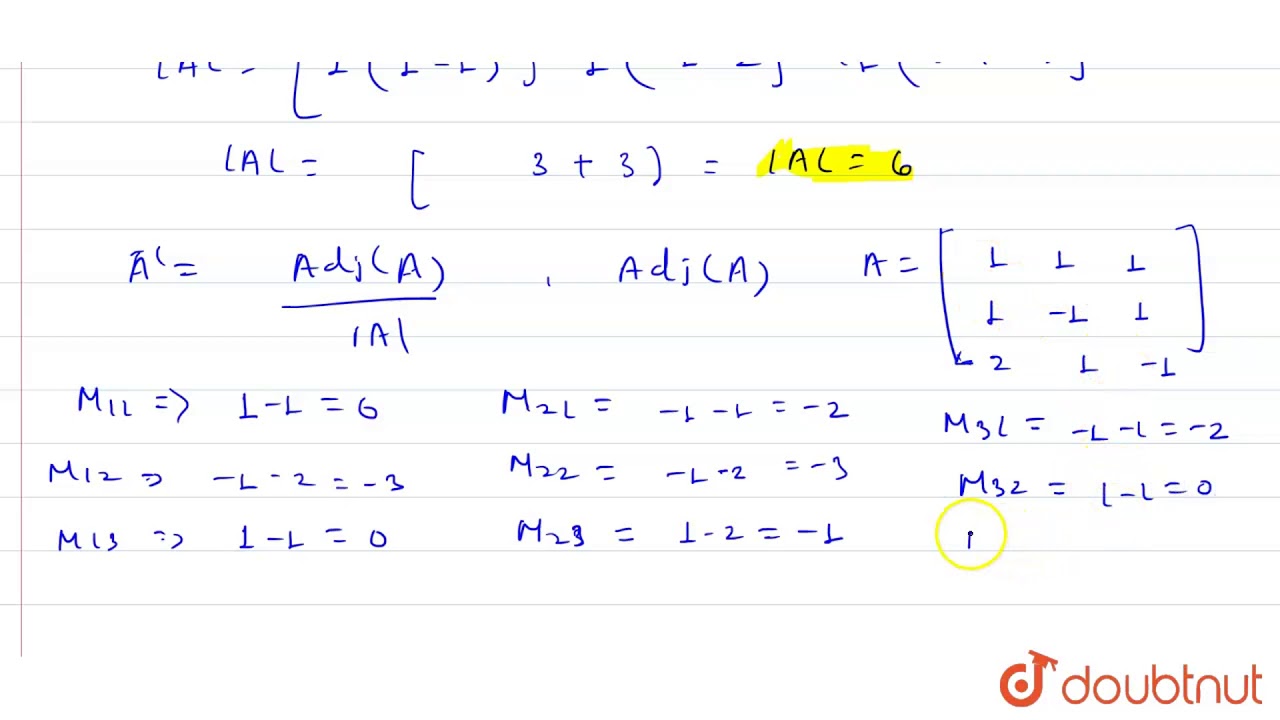 |A| = [ 3 + 3 ) = |A| = 6
A⁻¹ = Adj(A) / |A| , Adj(A) A = [ 1 1 1
1 -1 1
2 1 -1 ]
M11 => 1-1 = 0 M21 = -1-1 = -2 M31 = -1-1 = -2
M12 => -1-2 = -3 M22 = -1-2 = -3 M32 = 1-1 = 0
M13 => 1-1 = 0 M23 = 1-2 = -1
doubtnut